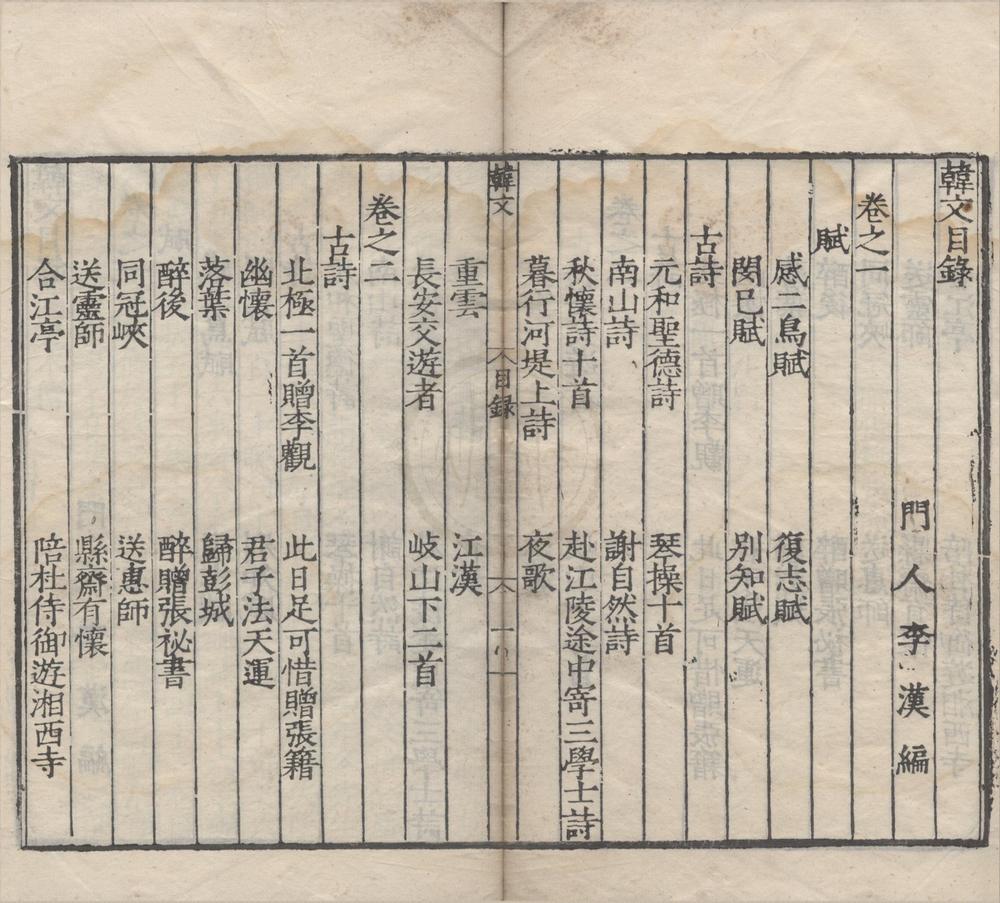 韓文目錄
門人李漢編
卷之一
賦
感二鳥賦 復志賦
閔已賦 別知賦
古詩
元和聖德詩 琴操十首
南山詩 謝自然詩
秋懷詩十首 赴江陵途中寄三學士詩
暮行河堤上詩 夜歌
韓文 目録 一
重雲 江漢
長安交遊者 岐山下二首
卷之二
古詩
北極一首贈李觀 此日足可惜贈張籍
幽懷 君子法天運
落葉 歸彭城
醉後 醉贈張祕書
同冠峽 送惠師
送靈師 縣齋有懷
合江亭 陪杜侍御遊湘西寺